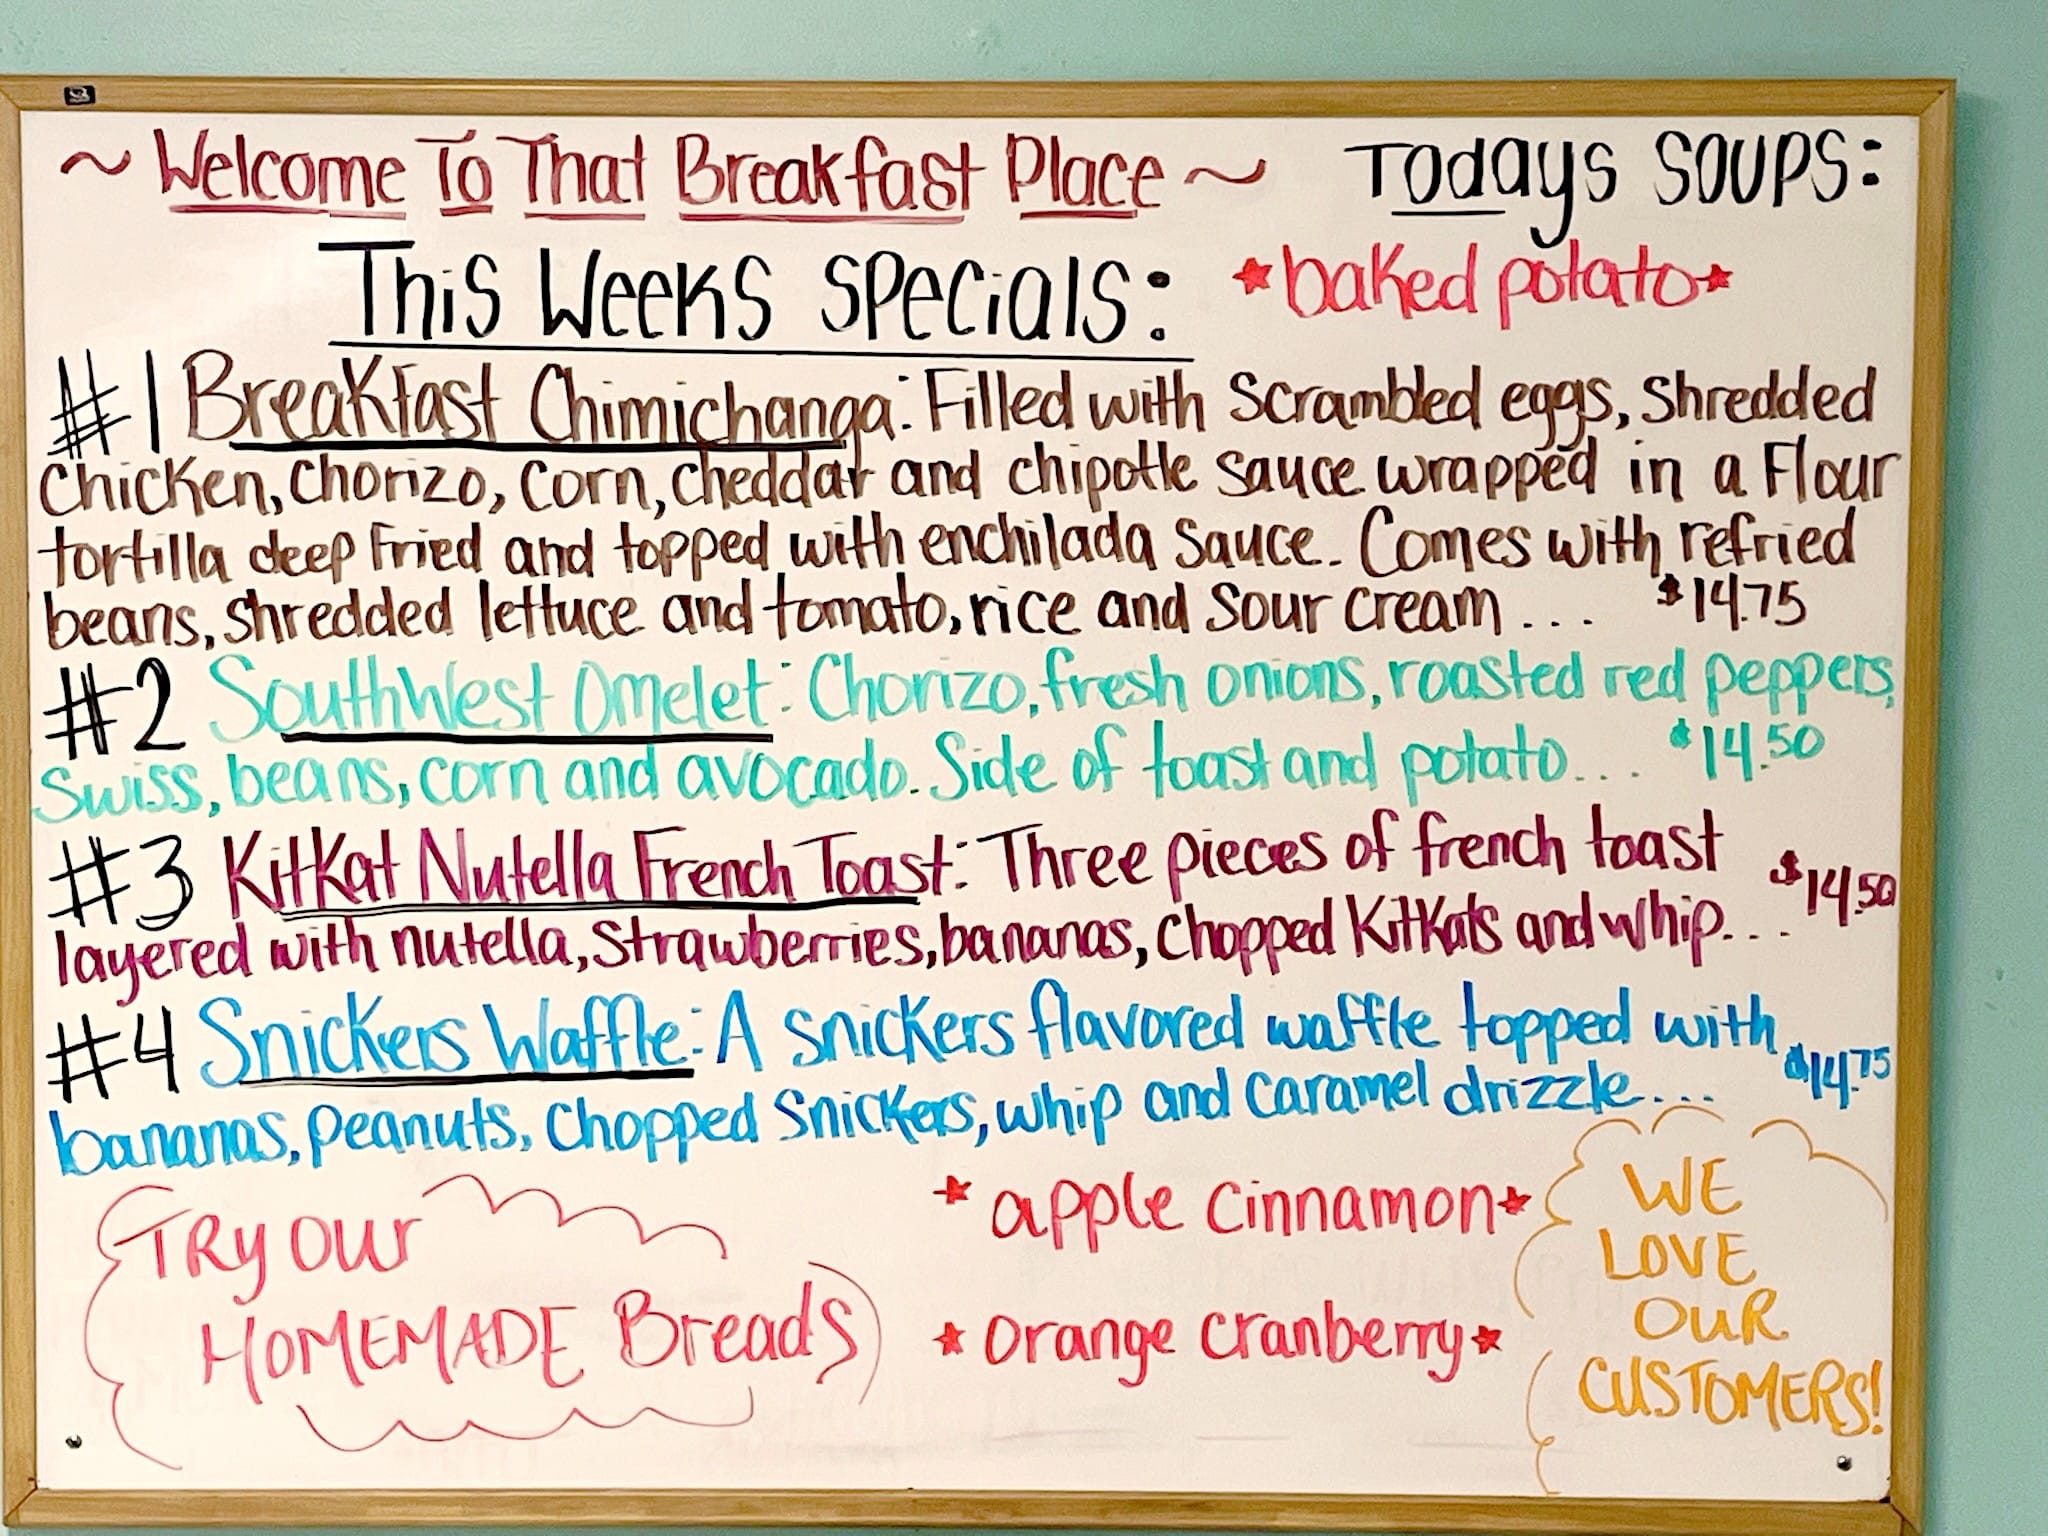 ~ Welcome To That Breakfast Place ~
Todays Soups:
*baked potato*
This Weeks Specials:
#1 Breakfast Chimichanga: Filled with scrambled eggs, shredded
chicken, chorizo, corn, cheddar and chipotle sauce wrapped in a flour
tortilla deep fried and topped with enchilada sauce. Comes with refried
beans, shredded lettuce and tomato, rice and sour cream ... $14.75
#2 SouthWest Omelet: Chorizo, fresh onions, roasted red peppers,
Swiss, beans, corn and avocado. Side of toast and potato... $14.50
#3 KitKat Nutella French Toast: Three pieces of french toast
layered with nutella, strawberries, bananas, chopped KitKats and whip... $14.50
#4 Snickers Waffle: A snickers flavored waffle topped with
bananas, peanuts, chopped snickers, whip and caramel drizzle.... $14.75
TRY OUR
HOMEMADE Breads
*apple cinnamon*
*orange cranberry*
WE
LOVE
OUR
CUSTOMERS!